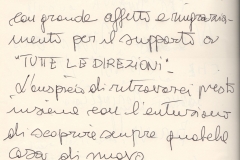 con grande affetto e ringrazia-
mento per il supporto a
"TUTTE LE DIREZIONI".
L'auspicio di ritrovarci presto
insieme con l'entusiasmo
di scoprire sempre qualche
cosa di nuovo